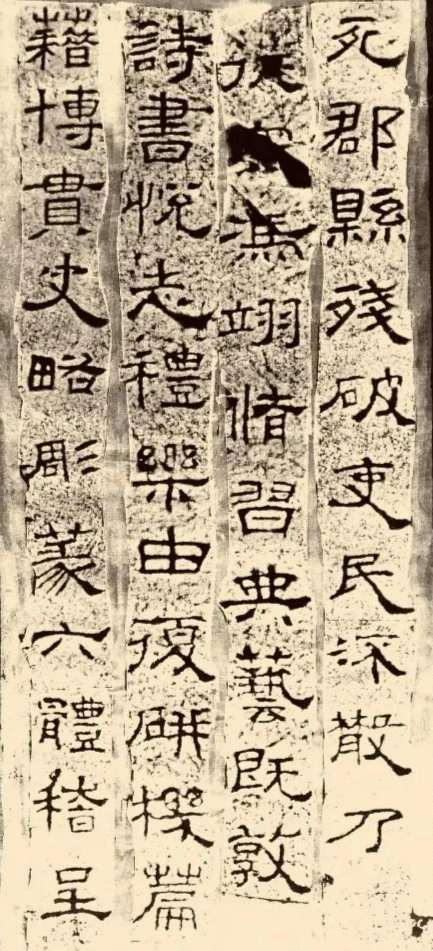 死郡縣殘破吏民流散乃
徙馮翊脩習典藝既敦
詩書悅志禮樂由復研機篇
藉博貫史略彫篆六體稽呈